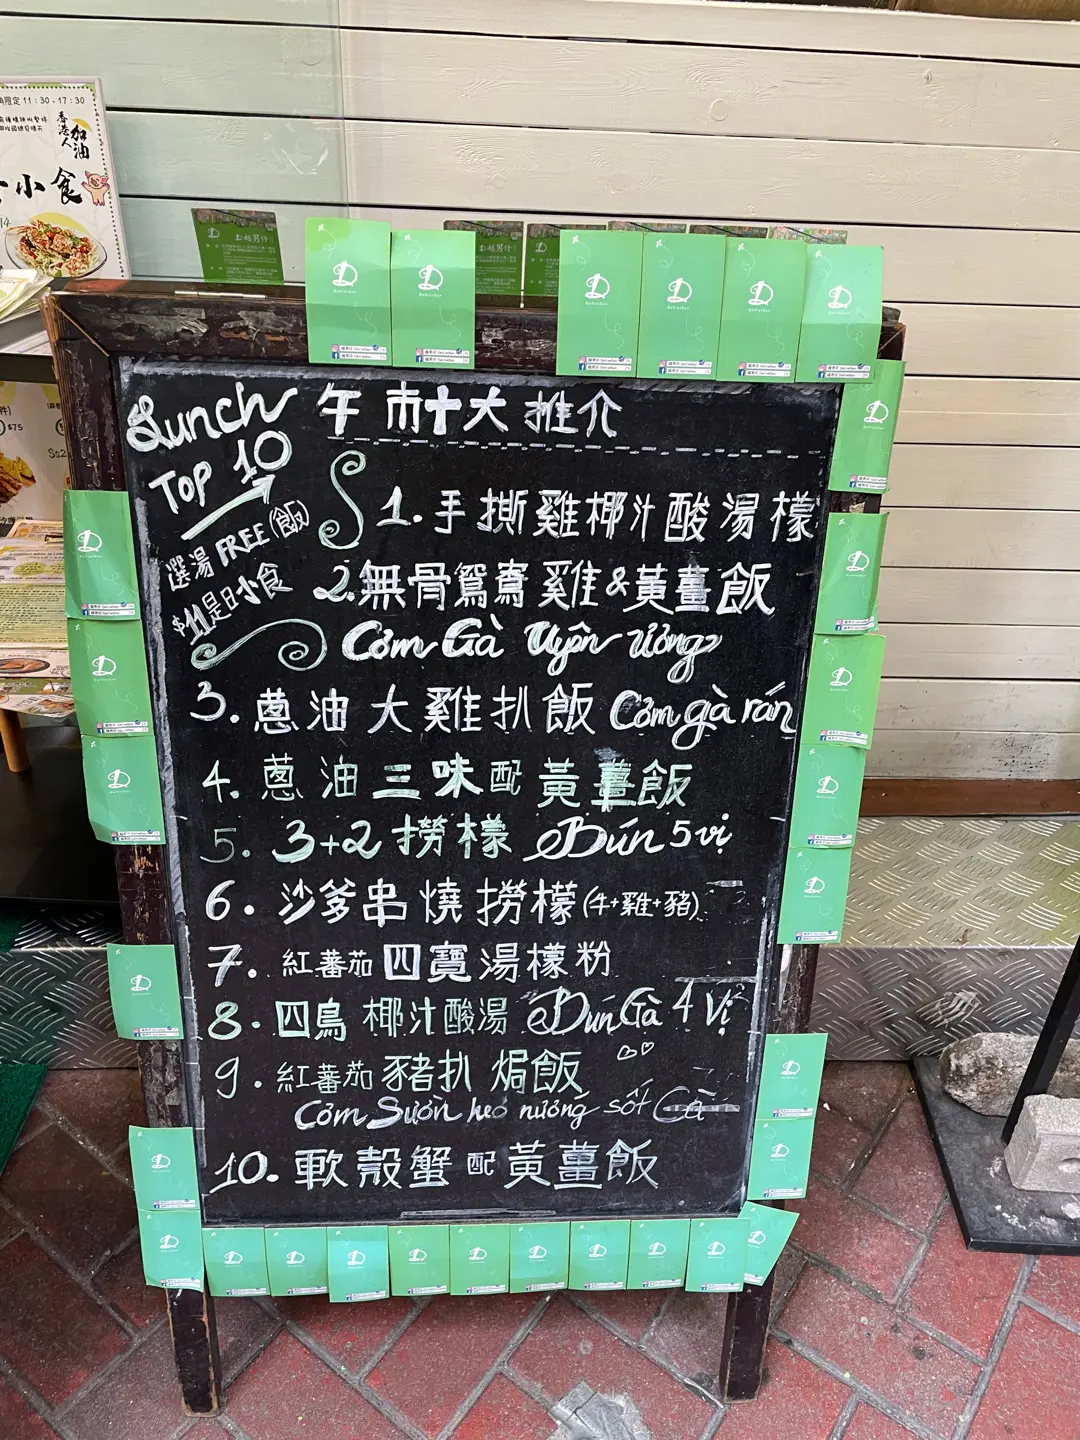 限定 11:30 - 17:30
香港人
加油
小食
$75
Lunch
Top 10
午市十大推介
選湯 FREE (飯)
$11是日小食
1. 手撕雞椰汁酸湯檬
2. 無骨鴛鴦雞&黃薑飯
Cơm Gà Uyên ương
3. 蔥油大雞扒飯 Cơm gà rán
4. 蔥油三味配黃薑飯
5. 3+2撈檬 Bún 5 vị
6. 沙爹串燒撈檬(牛+雞+豬)
7. 紅蕃茄四寶湯檬粉
8. 四鳥椰汁酸湯 Bún Gà 4 Vị
9. 紅蕃茄豬扒焗飯
Cơm Sườn heo nướng sốt Cà
10. 軟殼蟹配黃薑飯